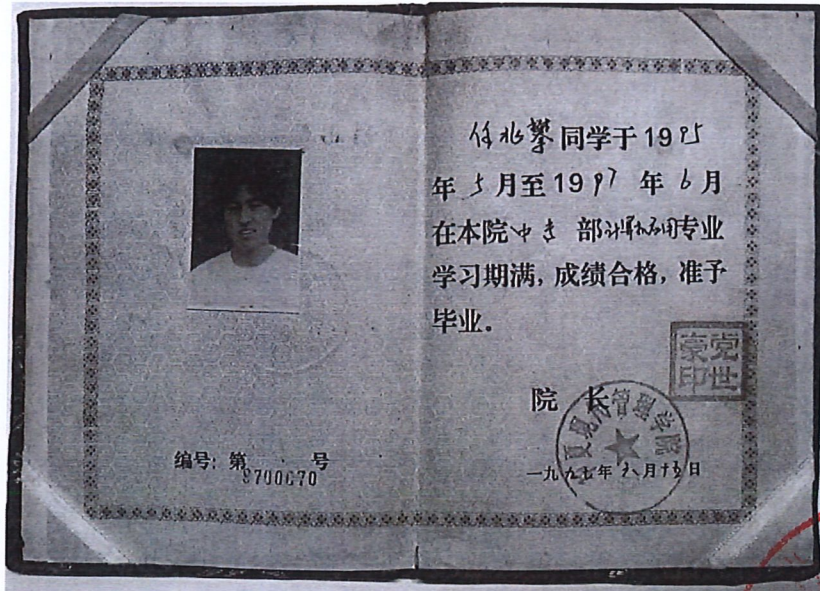 任兆攀同学于1995
年5月至1997年6月
在本院中专部计算机应用专业
学习期满，成绩合格，准予
毕业。
院长
党世豪印
管理学院
一九九七年六月十五日
编号：第 号
9700070